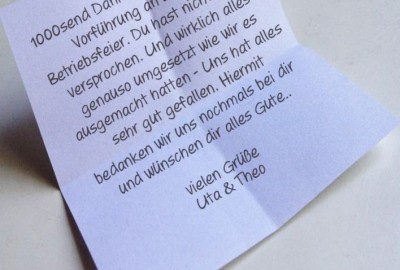 1000send Dan
Vorführung an
Betriebsfeier. Du hast nich
versprochen. Und wirklich alles
genauso umgesetzt wie wir es
ausgemacht hatten - Uns hat alles
sehr gut gefallen. Hiermit
bedanken wir uns nochmals bei dir
und wünschen dir alles Gute..
vielen Grüße
Uta & Theo